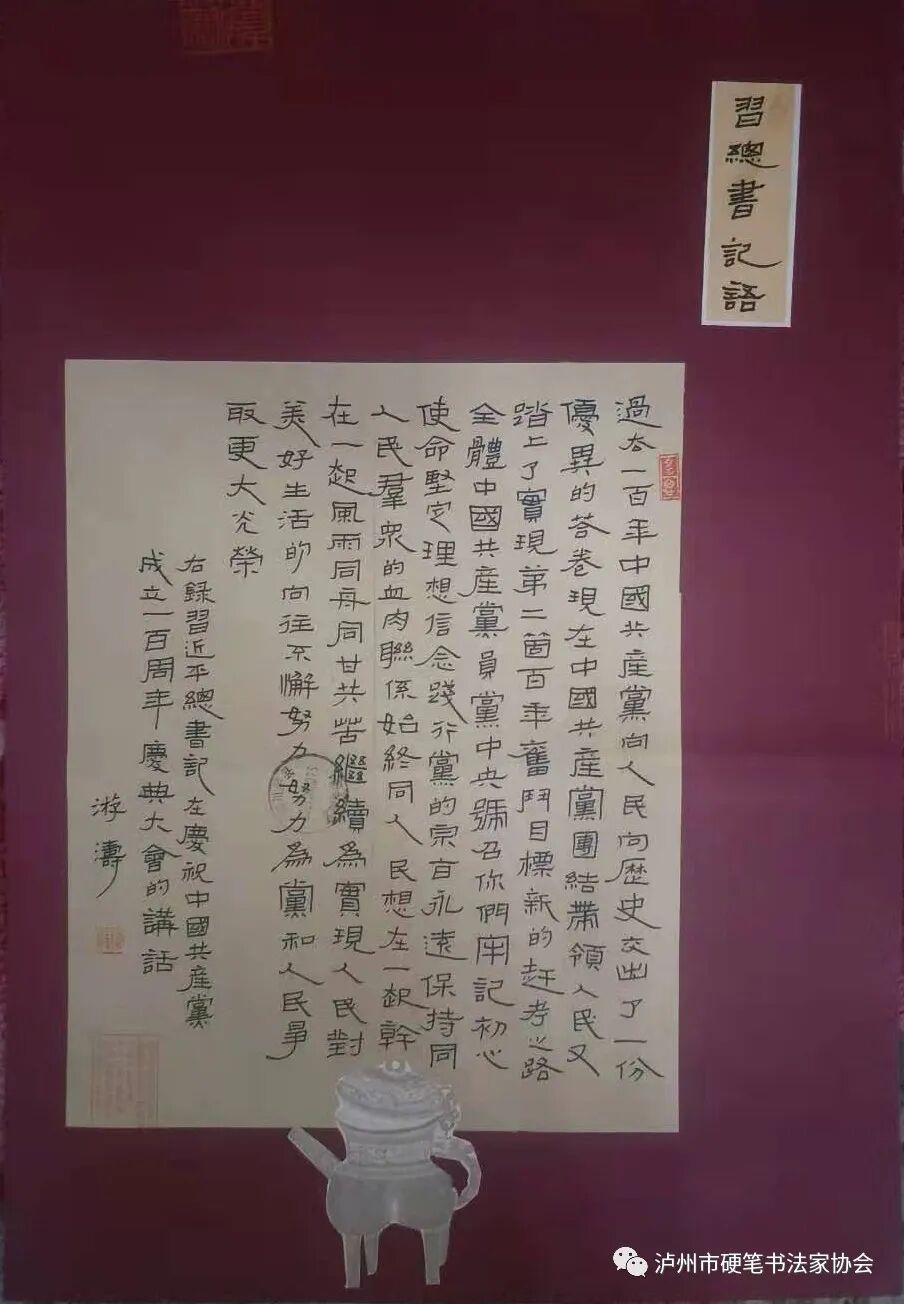 習總書記語
過去一百年中國共產黨向人民向歷史交出了一份
優異的答卷現在中國共產黨團結帶領人民又
踏上了實現第二箇百年奮鬥目標新的赶考之路
全體中國共產黨員黨中央號召你們牢記初心
使命堅定理想信念踐行黨的宗旨永遠保持同
人民羣衆的血肉聯係始終同人民想在一起幹
在一起風雨同舟同甘共苦繼續爲實現人民對
美好生活的向往不懈努力努力爲黨和人民爭
取更大光榮
右錄習近平總書記在慶祝中國共產黨
成立一百周年慶典大會的講話
游濤
泸州市硬笔书法家协会